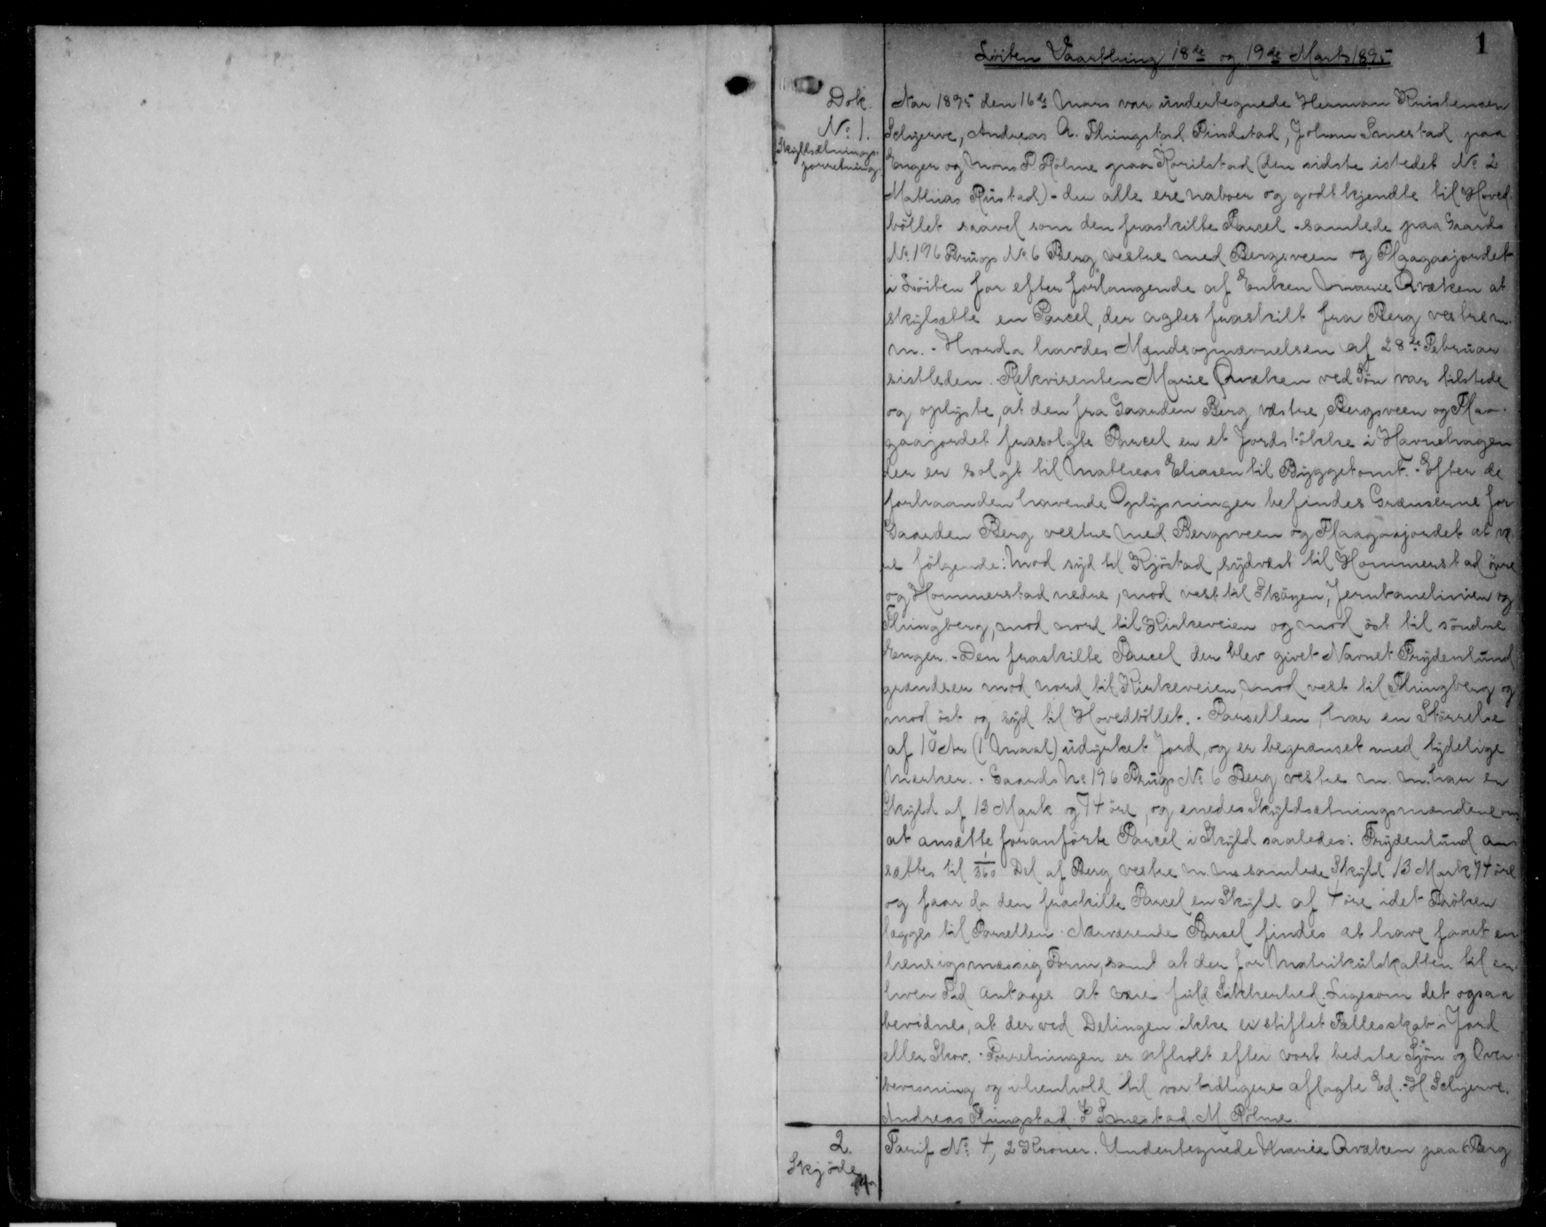 1
Löiten Vaarthing 18de og 19de Marts 1895
Dok.
No 1.
Skyldsætnings-
forretning.
Aar 1895 den 16de Mars var undertegnede Herman Kristensen
Schjerve, Andreas A. Thingstad Bindstad, Johan Smestad paa
Enger og Mons P Röhne paa Karilstad (den sidste istedet No 2
Mathias Rustad) - der alle ere naboer og godt kjendte til Hoved-
böllet saavel som den fraskilte Parcel - samlede paa Gaards
No 196 Brugs No 6 Berg vestre med Bergsveen og Flaagaajordet
i Löiten for efter forlangende af Enken Marie Qvæken at
skyldsætte en Parcel, der agtes fraskilt fra Berg vestre m.
m. - Hvorda havdes Mændsopnævnelsen af 28de Februar
sistleden. Rekvirenten Marie Qvæken ved Sön var tilstede
og oplyste, at den fra Gaarden Berg vestre, Bergsveen og Flaa-
gaajordet frasolgte Parcel er et Jordstökke i Havnehagen
der er solgt til Mathias Eliasen til Byggetomt. - Efter de
forhaanden havende Oplysninger befindes Grænserne for
Gaarden Berg vestre med Bergsveen og Flaagaajordet at væ-
re fölgende: Mod syd til Kjöstad, sydvest til Hommerstad övre
og Hommerstad nedre, mod vest til Skögen, Jernbanelinien og
Thingberg, mod nord til Kirkeveien og mod öst til söndre
Enger. - Den fraskilte Parcel der blev givet Navnet Frydenlund
grændser mod nord til Kirkeveien mod vest til Thingberg og
mod öst og syd til Hovedböllet. - Parsellen, har en Störrelse
af 10 Ar (1 Maal) udyrket Jord, og er begrænset med tydelige
Mærker. - Gaards No 196 Brugs No 6 Berg vestre m. m. har en
Skyld af 13 Mark og 74 öre, og enedes Skyldsætningsmændene om
at ansætte foranförte Parcel i Skyld saaledes: Frydenlund an-
sættes til 1/360 Del af Berg vestre m. m. samlede Skyld 13 Mark 74 öre
og faar da den fraskilte Parcel en Skyld af 4 öre idet Bröken
lægges til Parsellen. Nærværende Parsel findes at have faaet en
hensigsmæssig Form, samt at der for Matrikulskatten til en-
hver Tid antages at være fuld Sikkerhed. Ligesom det ogsaa
bevidnes, at der ved Delingen ikke er stiftet Fællesskab i Jord
eller Skov. - Forretningen er afholt efter vort bedste Sjön og Over-
bevisning og i henhold til vor tidligere aflagte Ed. - H Schjerve.
Andreas Thingstad. J Smestad. M Röhne.
2.
Skjöde
Tarif No 4, 2 Kroner. Undertegnede Marie Qvæken paa Berg